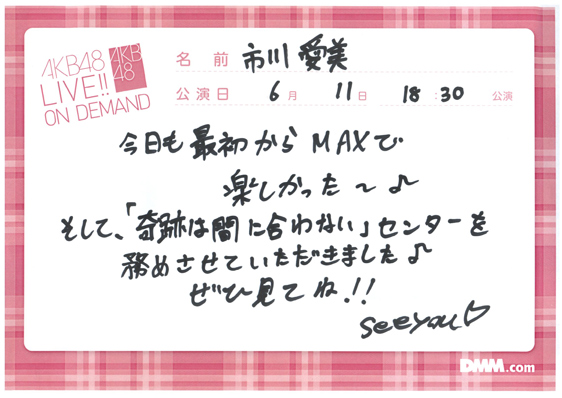 AKB48
LIVE!!
ON DEMAND
AKB
48
名前 市川愛美
公演日 6月 11日 18:30 公演
今日も最初からMAXで
楽しかった〜♪
そして、「奇跡は間に合わない」センターを
務めさせていただきました♪
ぜひ見てね!!
see you♡
DMM.com